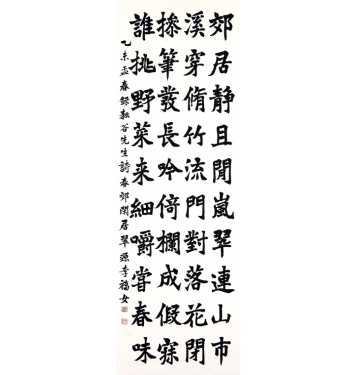 郊居靜且閒嵐翠連山市
溪穿脩竹流門對落花閉
操筆發長吟倚欄成假寐
誰挑野菜来細嚼嘗春味
乙未孟春錄耘谷先生詩春郊閒居翠源李福女